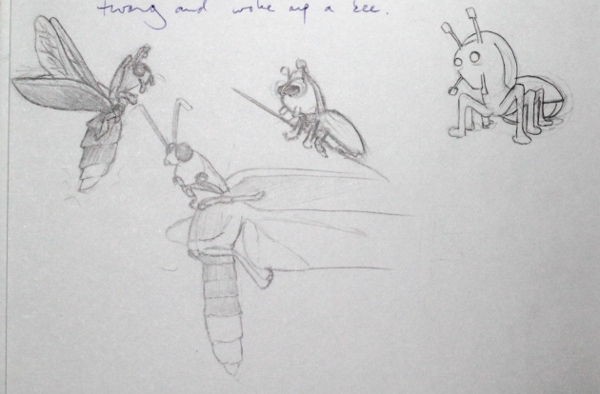 twang and woke up a bee.